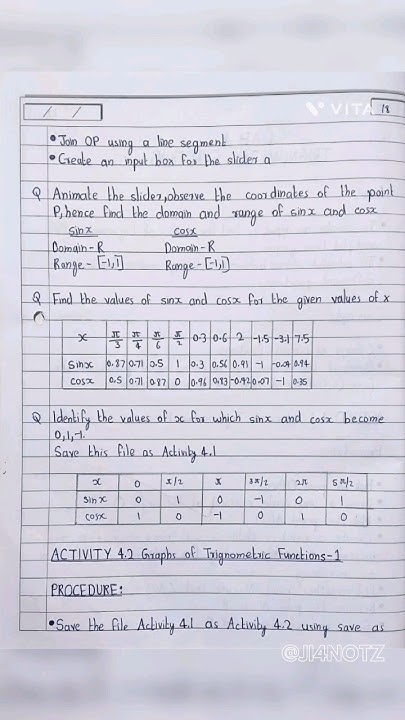 VITA
18
/ /
• Join OP using a line segment
• Create an input box for the slider a
Q Animate the slider, observe the coordinates of the point
P, hence find the domain and range of sinx and cosx
sinx cosx
Domain - R Domain - R
Range - [-1,1] Range - [-1,1]
Q Find the values of sinx and cosx for the given values of x
x π/3 π/4 π/6 π/2 0.3 0.6 2 -1.5 -3.1 7.5
Sinx 0.87 0.71 0.5 1 0.3 0.56 0.91 -1 -0.04 0.94
Cosx 0.5 0.71 0.87 0 0.96 0.83 -0.42 0.07 -1 0.35
Q Identify the values of x for which sinx and cosx become
0,1,-1.
Save this file as Activity 4.1
x 0 π/2 π 3π/2 2π 5π/2
sinx 0 1 0 -1 0 1
cosx 1 0 -1 0 1 0
ACTIVITY 4.2 Graphs of Trignometric Functions-1
PROCEDURE:
• Save the file Activity 4.1 as Activity 4.2 using save as
@JI4NOTZ